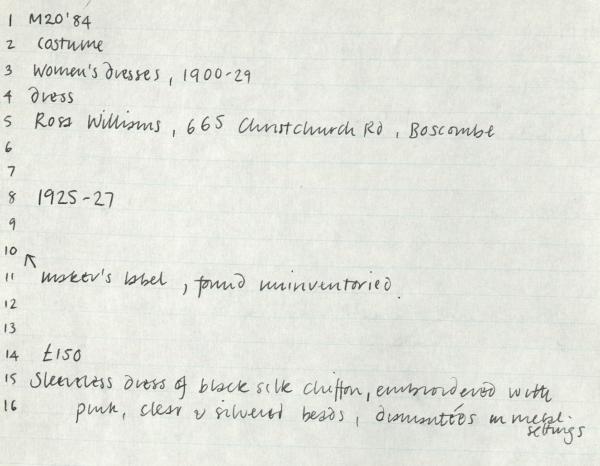 1 M20'84
2 Costume
3 Women's dresses, 1900-29
4 dress
5 Ross Williams, 665 Christchurch Rd, Boscombe
6
7
8 1925-27
9
10
11 maker's label, found uninventoried.
12
13
14 £150
15 Sleeveless dress of black silk chiffon, embroidered with
16 pink, clear & silvered beads, diamantées in metal
settings